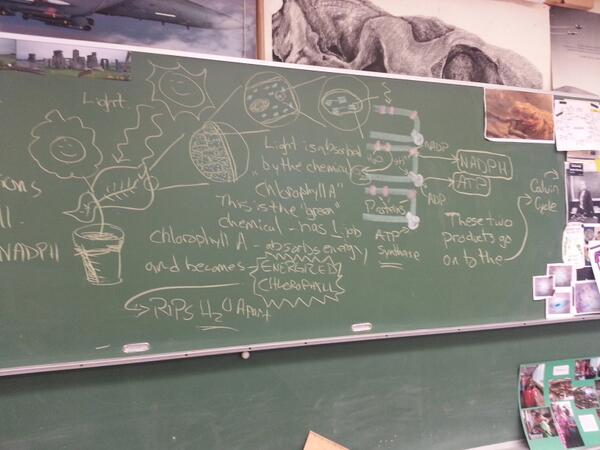 Light
Light is absorbed
by the chemical
"Chlorophyll A"
This is the "green"
chemical - has 1 job
Chlorophyll A - absorbs energy
and becomes - ENERGIZED
CHLOROPHYLL
→ RIPS H2O Apart
NADPH
H2O
NADP
NADPH
ATP
ADP
Proteins
ATP
Synthase
These two
products go
on to the
Calvin
Cycle